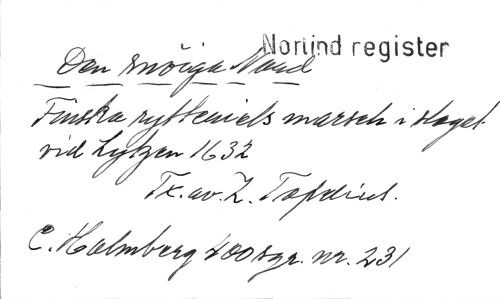 Norlind register
Den snöiga Nord
Finska rytteriets marsch i slaget
vid Lytzen 1632
Tx. av. Z. Topelius.
C. Holmberg 400 sgr. nr. 231